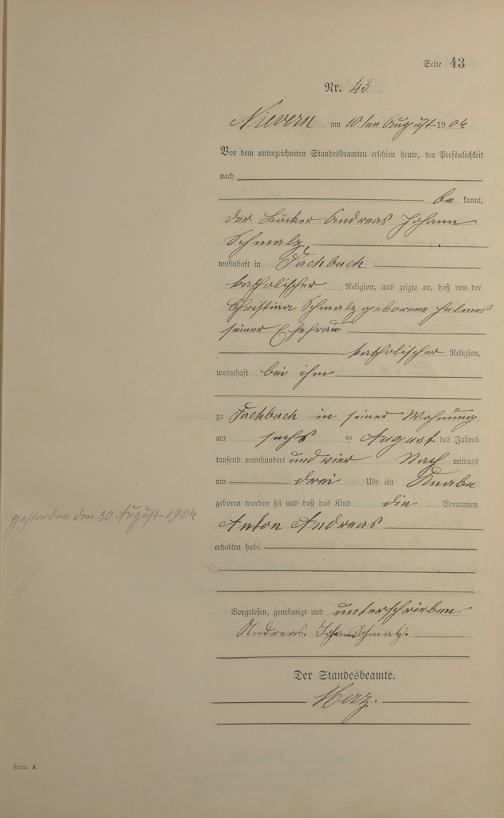 Seite 43
Nr. 43
Nievern am 10ten August 1904
Vor dem unterzeichneten Standesbeamten erschien heute, der Persönlichkeit
nach
be kannt,
der Bäcker Andreas Johann
Schmalz,
wohnhaft in Fachbach
katholischer Religion, und zeigte an, daß von der
Christina Schmalz geborene
seiner Ehefrau
katholischer Religion,
wohnhaft bei ihm
zu Fachbach in seiner Wohnung
am sechs ten August des Jahres
tausend neunhundert und vier Nach mittags
um drei Uhr ein Knabe
geboren worden sei und daß das Kind die Vornamen
gestorben den 30 August 1904
Anton Andreas
erhalten habe.
Vorgelesen, genehmigt und unterschrieben
Andreas Johann Schmalz.
Der Standesbeamte.
Merz.
Form. A.